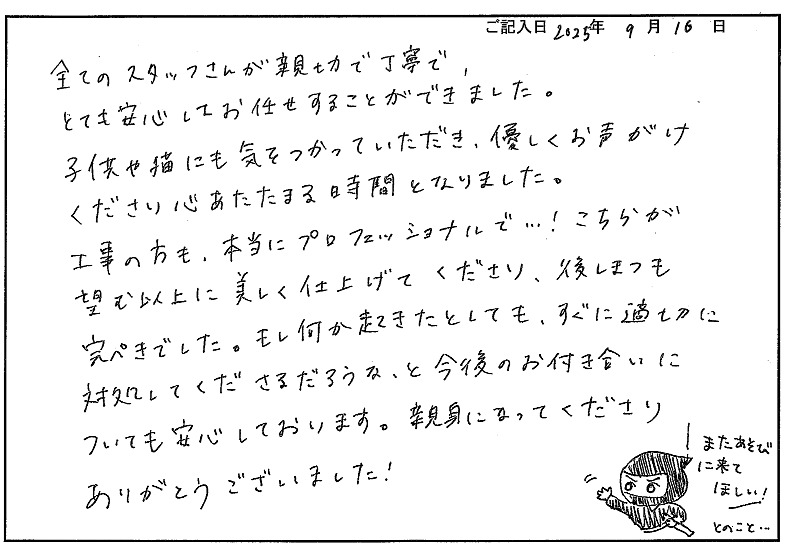 ご記入日 2025年 9月 16日
全てのスタッフさんが親切で丁寧で、
とても安心してお任せすることができました。
子供や猫にも気をつかっていただき、優しくお声がけ
くださり心あたたまる時間となりました。
工事の方も、本当にプロフェッショナルで…！こちらが
望む以上に美しく仕上げてくださり、後しまつも
完ぺきでした。もし何か起きたとしても、すぐに適切に
対処してくださるだろうな、と今後のお付き合いに
ついても安心しております。親身になってくださり
ありがとうございました！
またあそび
に来て
ほしい！
とのこと…